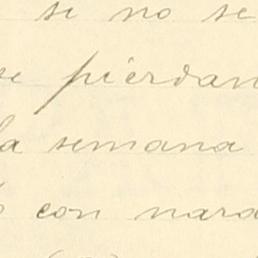 si no se
se pierdan
la semana
con nara